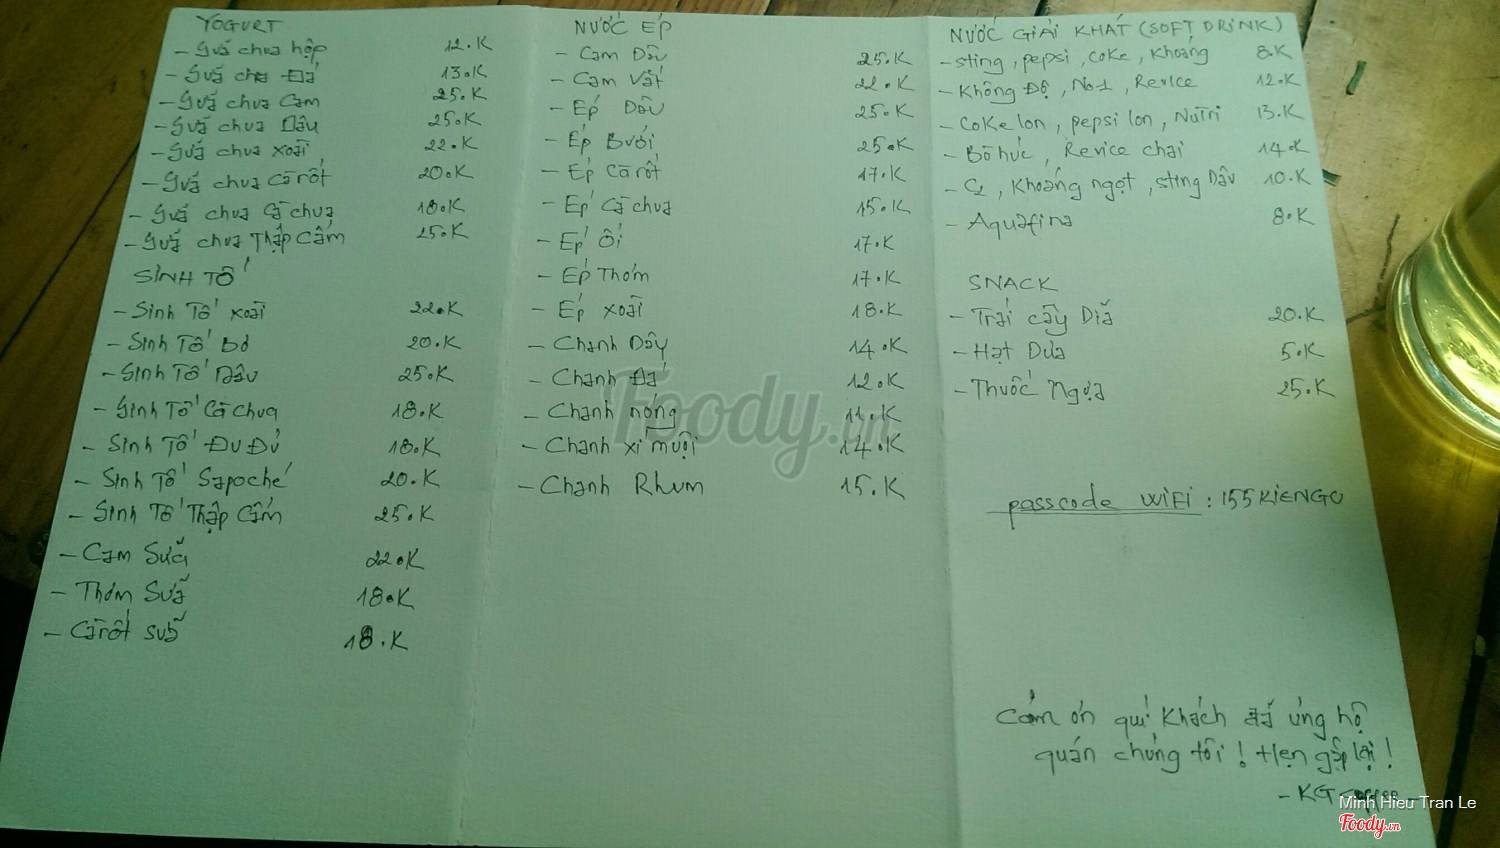 YOGURT
- Sữa chua hộp 12.K
- Sữa chua Đá 13.K
- Sữa chua Cam 25.K
- Sữa chua Dâu 25.K
- Sữa chua xoài 22.K
- Sữa chua Cà rốt 20.K
- Sữa chua Cà chua 18.K
- Sữa chua Thập Cẩm 25.K
SINH TỐ
- Sinh Tố xoài 22.K
- Sinh Tố bơ 20.K
- Sinh Tố Dâu 25.K
- Sinh Tố Cà chua 18.K
- Sinh Tố Đu Đủ 18.K
- Sinh Tố Sapochê 20.K
- Sinh Tố Thập Cẩm 25.K
- Cam Sữa 22.K
- Thơm Sữa 18.K
- Cà rốt sữa 18.K
NƯỚC ÉP
- Cam Dâu 25.K
- Cam Vắt 22.K
- Ép Dâu 25.K
- Ép Bưởi 25.K
- Ép Cà rốt 17.K
- Ép Cà chua 15.K
- Ép Ổi 17.K
- Ép Thơm 17.K
- Ép xoài 18.K
- Chanh Dây 14.K
- Chanh Đá 12.K
- Chanh nóng 11.K
- Chanh xí muội 14.K
- Chanh Rhum 15.K
NƯỚC GIẢI KHÁT (SOFT DRINK)
- sting, pepsi, coke, Khoáng 8.K
- Không Độ, No1, Revice 12.K
- Coke lon, pepsi lon, Nutri 13.K
- Bò húc, Revice chai 14.K
- C2, Khoáng ngọt, sting Dâu 10.K
- Aquafina 8.K
SNACK
- Trái cây Dĩa 20.K
- Hạt Dưa 5.K
- Thuốc Ngựa 25.K
passcode WiFi : 155KIENGU
Cảm ơn quí Khách đã ủng hộ
quán chúng tôi ! Hẹn gặp lại !
- KG coffee -
Foody.vn
Minh Hieu Tran Le
Foody.vn